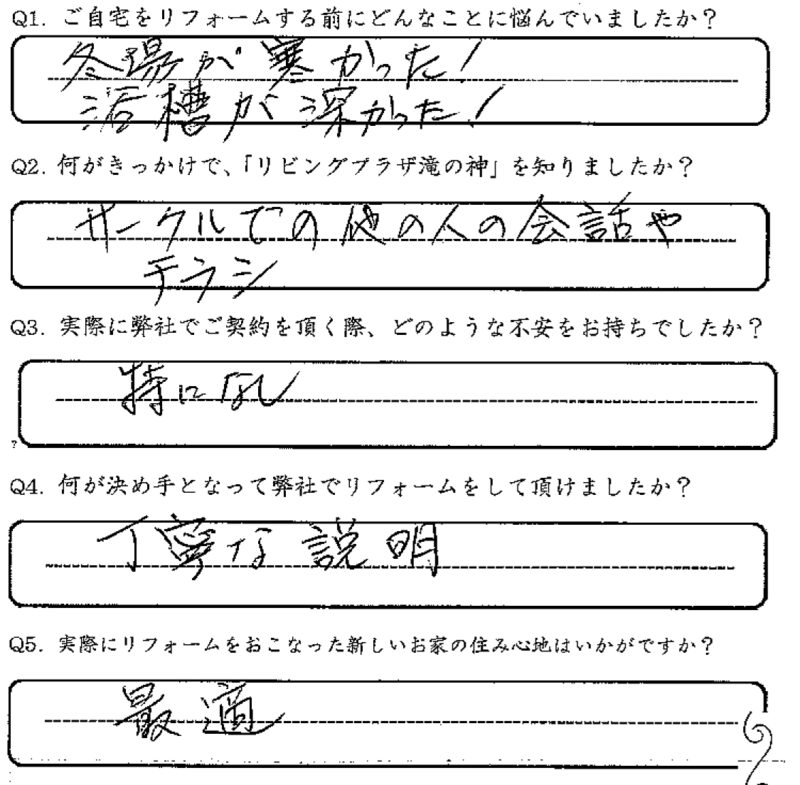 Q1. ご自宅をリフォームする前にどんなことに悩んでいましたか？
冬場が寒かった！
浴槽が深かった！
Q2. 何がきっかけで、「リビングプラザ滝の神」を知りましたか？
サークルでの他の人の会話や
チラシ
Q3. 実際に弊社でご契約を頂く際、どのような不安をお持ちでしたか？
特になし
?
Q4. 何が決め手となって弊社でリフォームをして頂けましたか？
丁寧な説明
Q5. 実際にリフォームをおこなった新しいお家の住み心地はいかがですか？
最適